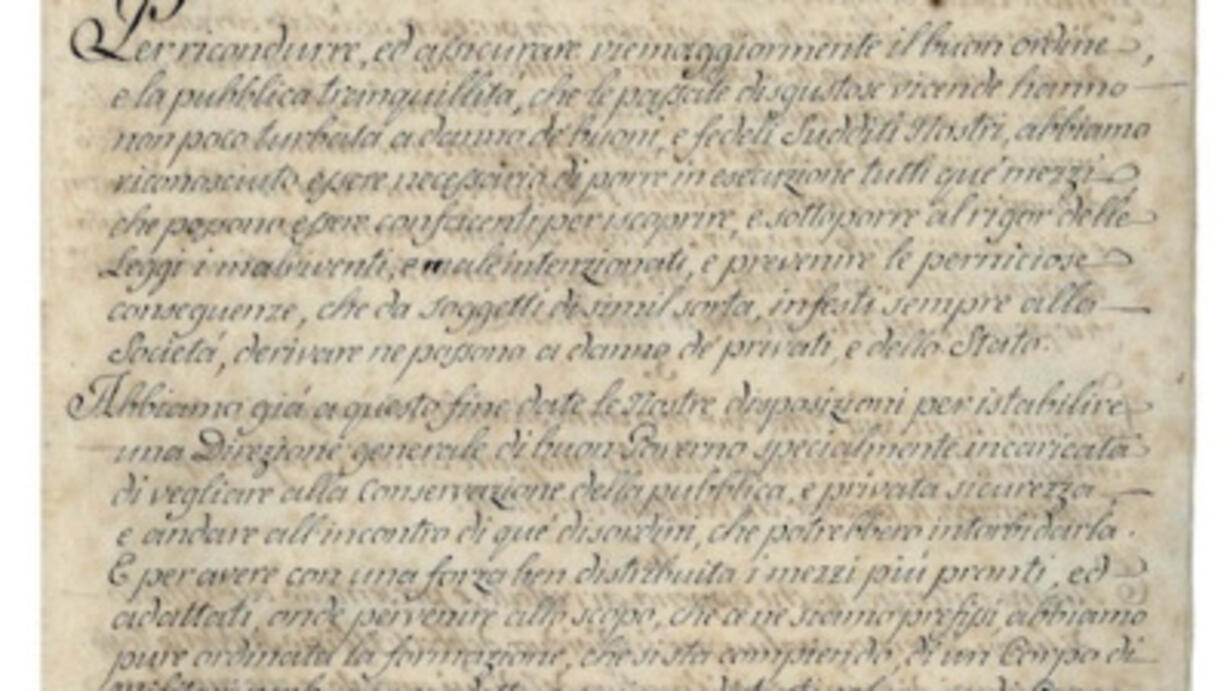 Per ricondurre, ed assicurare viemaggiormente il buon ordine,
e la pubblica tranquillità, che le passate disgustose vicende hanno
non poco turbata a danno de' buoni, e fedeli Sudditi Nostri, abbiamo
riconosciuto essere necessario di porre in esecuzione tutti que' mezzi
che possono essere confacenti per iscoprire, e sottoporre al rigor delle
Leggi i malviventi, e male intenzionati, e prevenire le perniciose
conseguenze, che da soggetti di simil sorta, infesti sempre alla
Società, derivare ne possono a danno de' privati, e dello Stato.
Abbiamo già a questo fine date le Nostre disposizioni per istabilire
una Direzione generale di buon Governo specialmente incaricata
di vegliare alla conservazione della pubblica, e privata sicurezza
e andare all'incontro di que' disordini, che potrebbero intorbidarla.
E per avere con una forza ben distribuita i mezzi più pronti, ed
adattati, onde pervenire allo scopo, che ce ne siamo prefissi abbiamo
pure ordinata la formazione, che si sta compiendo, di un Corpo di